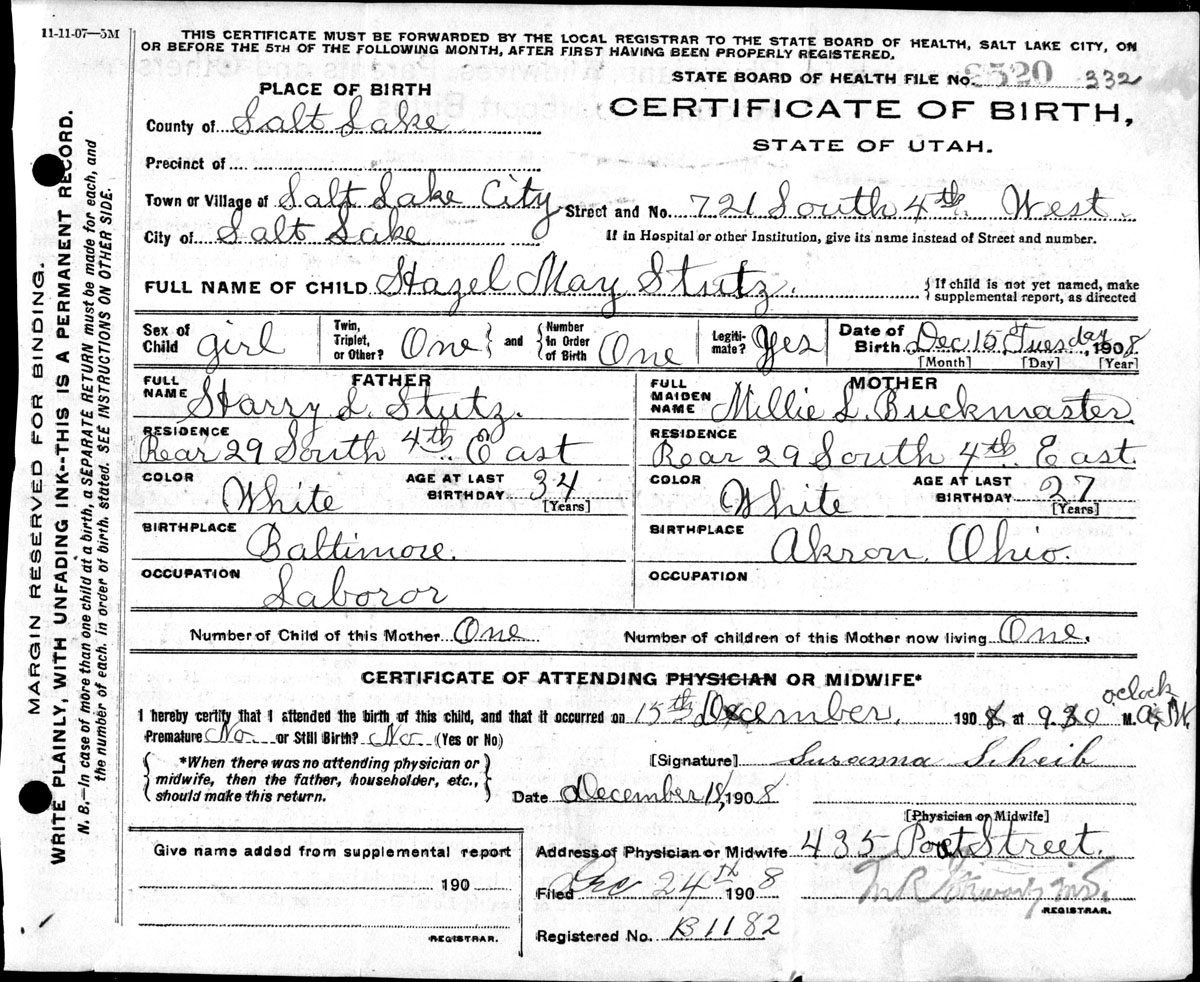 11-11-07—5M
THIS CERTIFICATE MUST BE FORWARDED BY THE LOCAL REGISTRAR TO THE STATE BOARD OF HEALTH, SALT LAKE CITY, ON
OR BEFORE THE 5TH OF THE FOLLOWING MONTH, AFTER FIRST HAVING BEEN PROPERLY REGISTERED.
STATE BOARD OF HEALTH FILE No. 332
PLACE OF BIRTH
CERTIFICATE OF BIRTH,
STATE OF UTAH.
County of Salt Lake
Precinct of
Town or Village of Salt Lake City Street and No. 721 South 4th West.
City of Salt Lake If in Hospital or other Institution, give its name instead of Street and number.
FULL NAME OF CHILD Hazel May Stutz. {If child is not yet named, make supplemental report, as directed
Sex of Child girl Twin, Triplet, or Other? One } and { Number in Order of Birth One Legitimate? Yes Date of Birth Dec 15 Tuesday 1908
[Month] [Day] [Year]
FATHER
FULL NAME Harry L. Stutz.
RESIDENCE Rear 29 South 4th East
COLOR White AGE AT LAST BIRTHDAY 34 [Years]
BIRTHPLACE Baltimore.
OCCUPATION Laboror
MOTHER
FULL MAIDEN NAME Millie L. Buckmaster.
RESIDENCE Rear 29 South 4th East.
COLOR White AGE AT LAST BIRTHDAY 27 [Years]
BIRTHPLACE Akron, Ohio.
OCCUPATION
Number of Child of this Mother One Number of children of this Mother now living One.
CERTIFICATE OF ATTENDING PHYSICIAN OR MIDWIFE*
I hereby certify that I attended the birth of this child, and that it occurred on 15th December, 1908 at 9.30 o'clock A. M.
Premature No. or Still Birth? No. (Yes or No)
{*When there was no attending physician or
midwife, then the father, householder, etc.,
should make this return.}
[Signature] Susanna Scheib
Date december 18, 1908
[Physician or Midwife]
Give name added from supplemental report
190
REGISTRAR.
Address of Physician or Midwife 435 Post Street.
Filed Dec 24th 1908
REGISTRAR.
Registered No. B1182
MARGIN RESERVED FOR BINDING.
WRITE PLAINLY, WITH UNFADING INK--THIS IS A PERMANENT RECORD.
N. B.—In case of more than one child at a birth, a SEPARATE RETURN must be made for each, and
the number of each, in order of birth, stated. SEE INSTRUCTIONS ON OTHER SIDE.